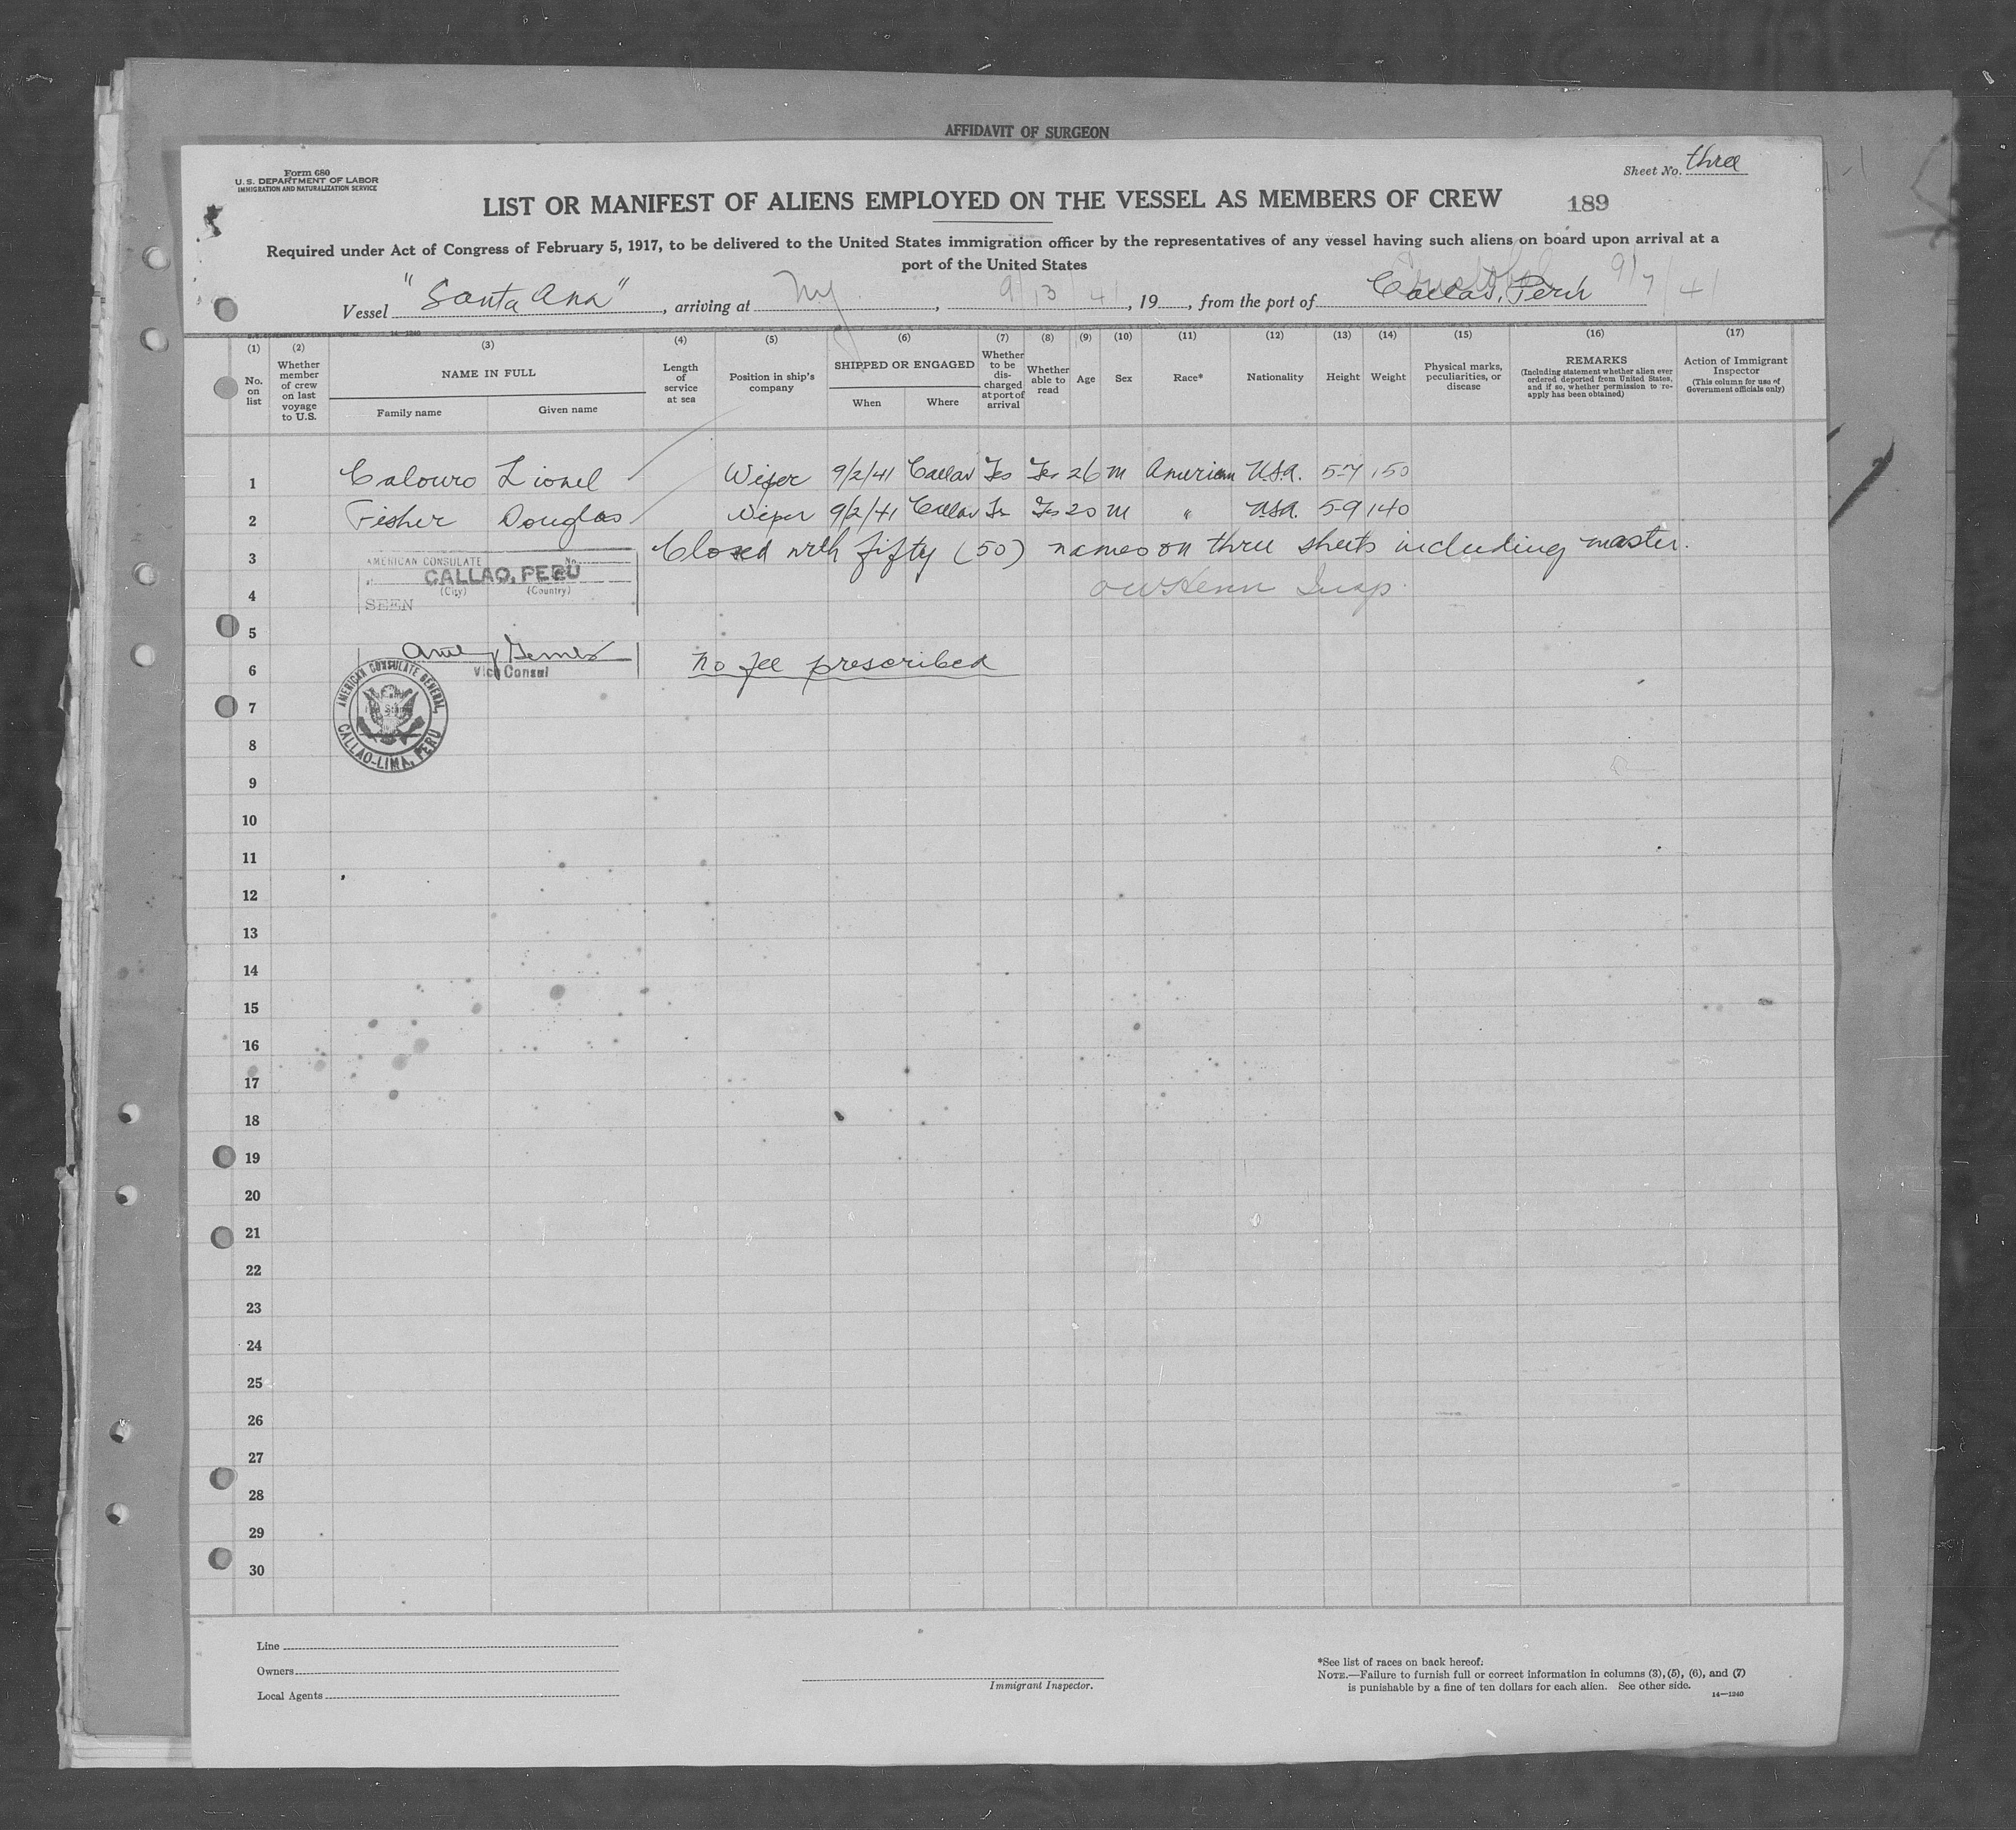 AFFIDAVIT OF SURGEON
Form 680
U. S. DEPARTMENT OF LABOR
IMMIGRATION AND NATURALIZATION SERVICE
Sheet No. three
LIST OR MANIFEST OF ALIENS EMPLOYED ON THE VESSEL AS MEMBERS OF CREW
189
Required under Act of Congress of February 5, 1917, to be delivered to the United States immigration officer by the representatives of any vessel having such aliens on board upon arrival at a
port of the United States
Vessel "Santa Ana", arriving at NY, 9/13/41, 19, from the port of Callao, Peru 9/7/41
(1) No. on list
(2) Whether member of crew on last voyage to U.S.
(3) NAME IN FULL
Family name Given name
(4) Length of service at sea
(5) Position in ship's company
(6) SHIPPED OR ENGAGED
When Where
(7) Whether to be discharged at port of arrival
(8) Whether able to read
(9) Age
(10) Sex
(11) Race*
(12) Nationality
(13) Height
(14) Weight
(15) Physical marks, peculiarities, or disease
(16) REMARKS
(Including statement whether alien ever ordered deported from United States, and if so, whether permission to re-apply has been obtained)
(17) Action of Immigrant Inspector
(This column for use of Government officials only)
1 Calouro Lionel Wiper 9/2/41 Callao Yes Yes 26 m American U.S.A. 5-7 150
2 Fisher Douglas Wiper 9/2/41 Callao Yes Yes 20 m " USA. 5-9 140
3 Closed with fifty (50) names on three sheets including master.
AMERICAN CONSULATE No.
CALLAO, PERU
(City) (Country)
4
SEEN
Insp.
5
6
Vice Consul
no fee prescribed
AMERICAN CONSULATE GENERAL,
CALLAO-LIMA, PERU
7
8
9
10
11
12
13
14
15
16
17
18
19
20
21
22
23
24
25
26
27
28
29
30
Line
Owners
Local Agents
Immigrant Inspector.
*See list of races on back hereof.
NOTE.—Failure to furnish full or correct information in columns (3), (5), (6), and (7)
is punishable by a fine of ten dollars for each alien. See other side.
14—1240